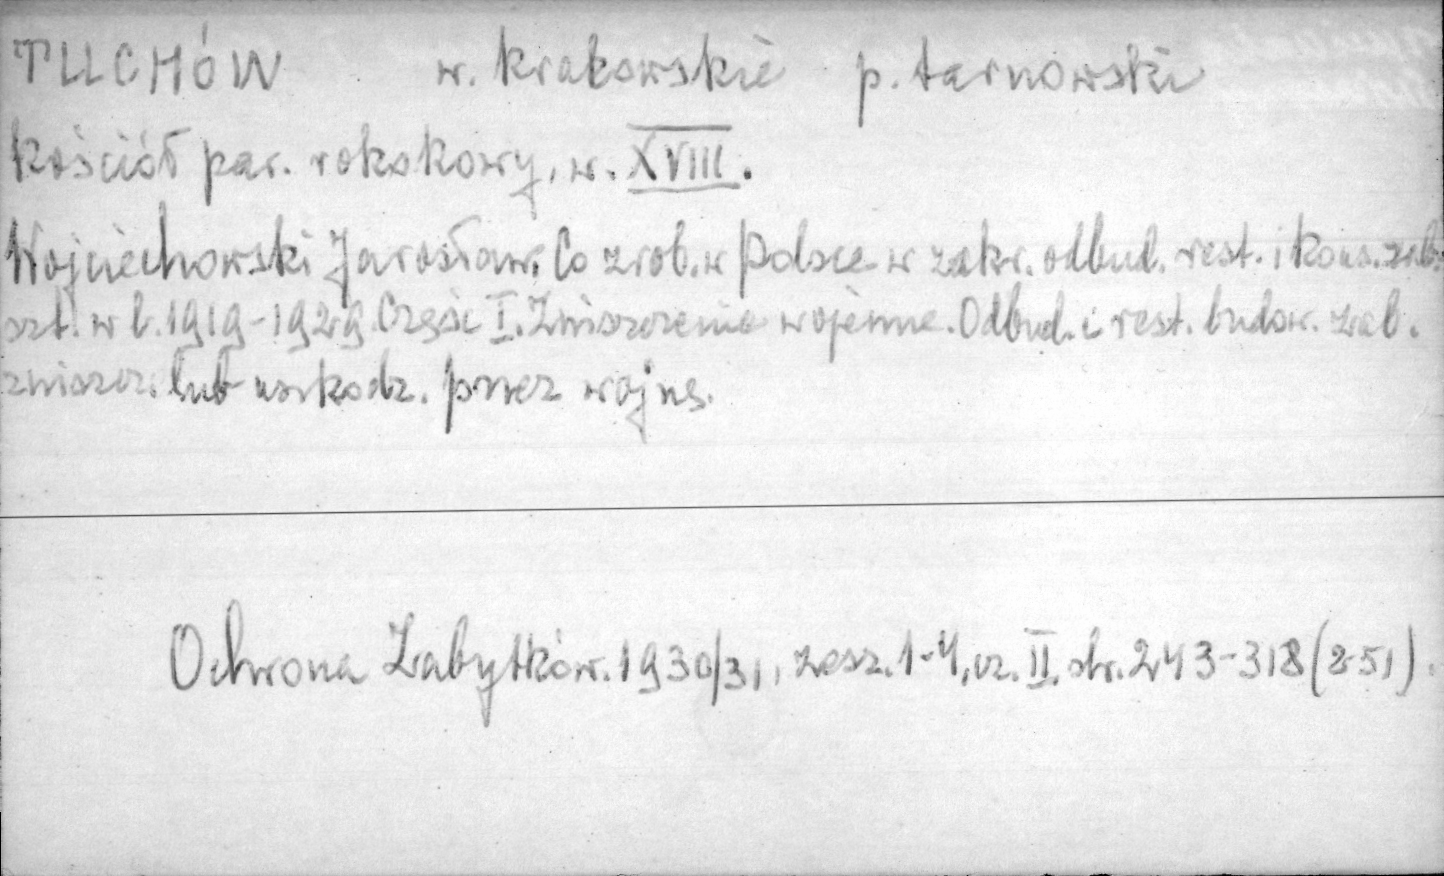 TUCHÓW w. krakowskie p. tarnowski
Kościół par. rokokowy, w. XVIII.
Wojciechowski Jarosław: Co zrob. w Polsce w zakr. odbud. rest. i kons. zab.
szt. w l. 1919-1929. Część I. Zniszczenie wojenne. Odbud. i rest. budow. zab.
zniszcz. lub uszkodz. przez wojnę.
Ochrona Zabytków. 1930/31, zesz. 1-4, cz. II, str. 243-318 (251).